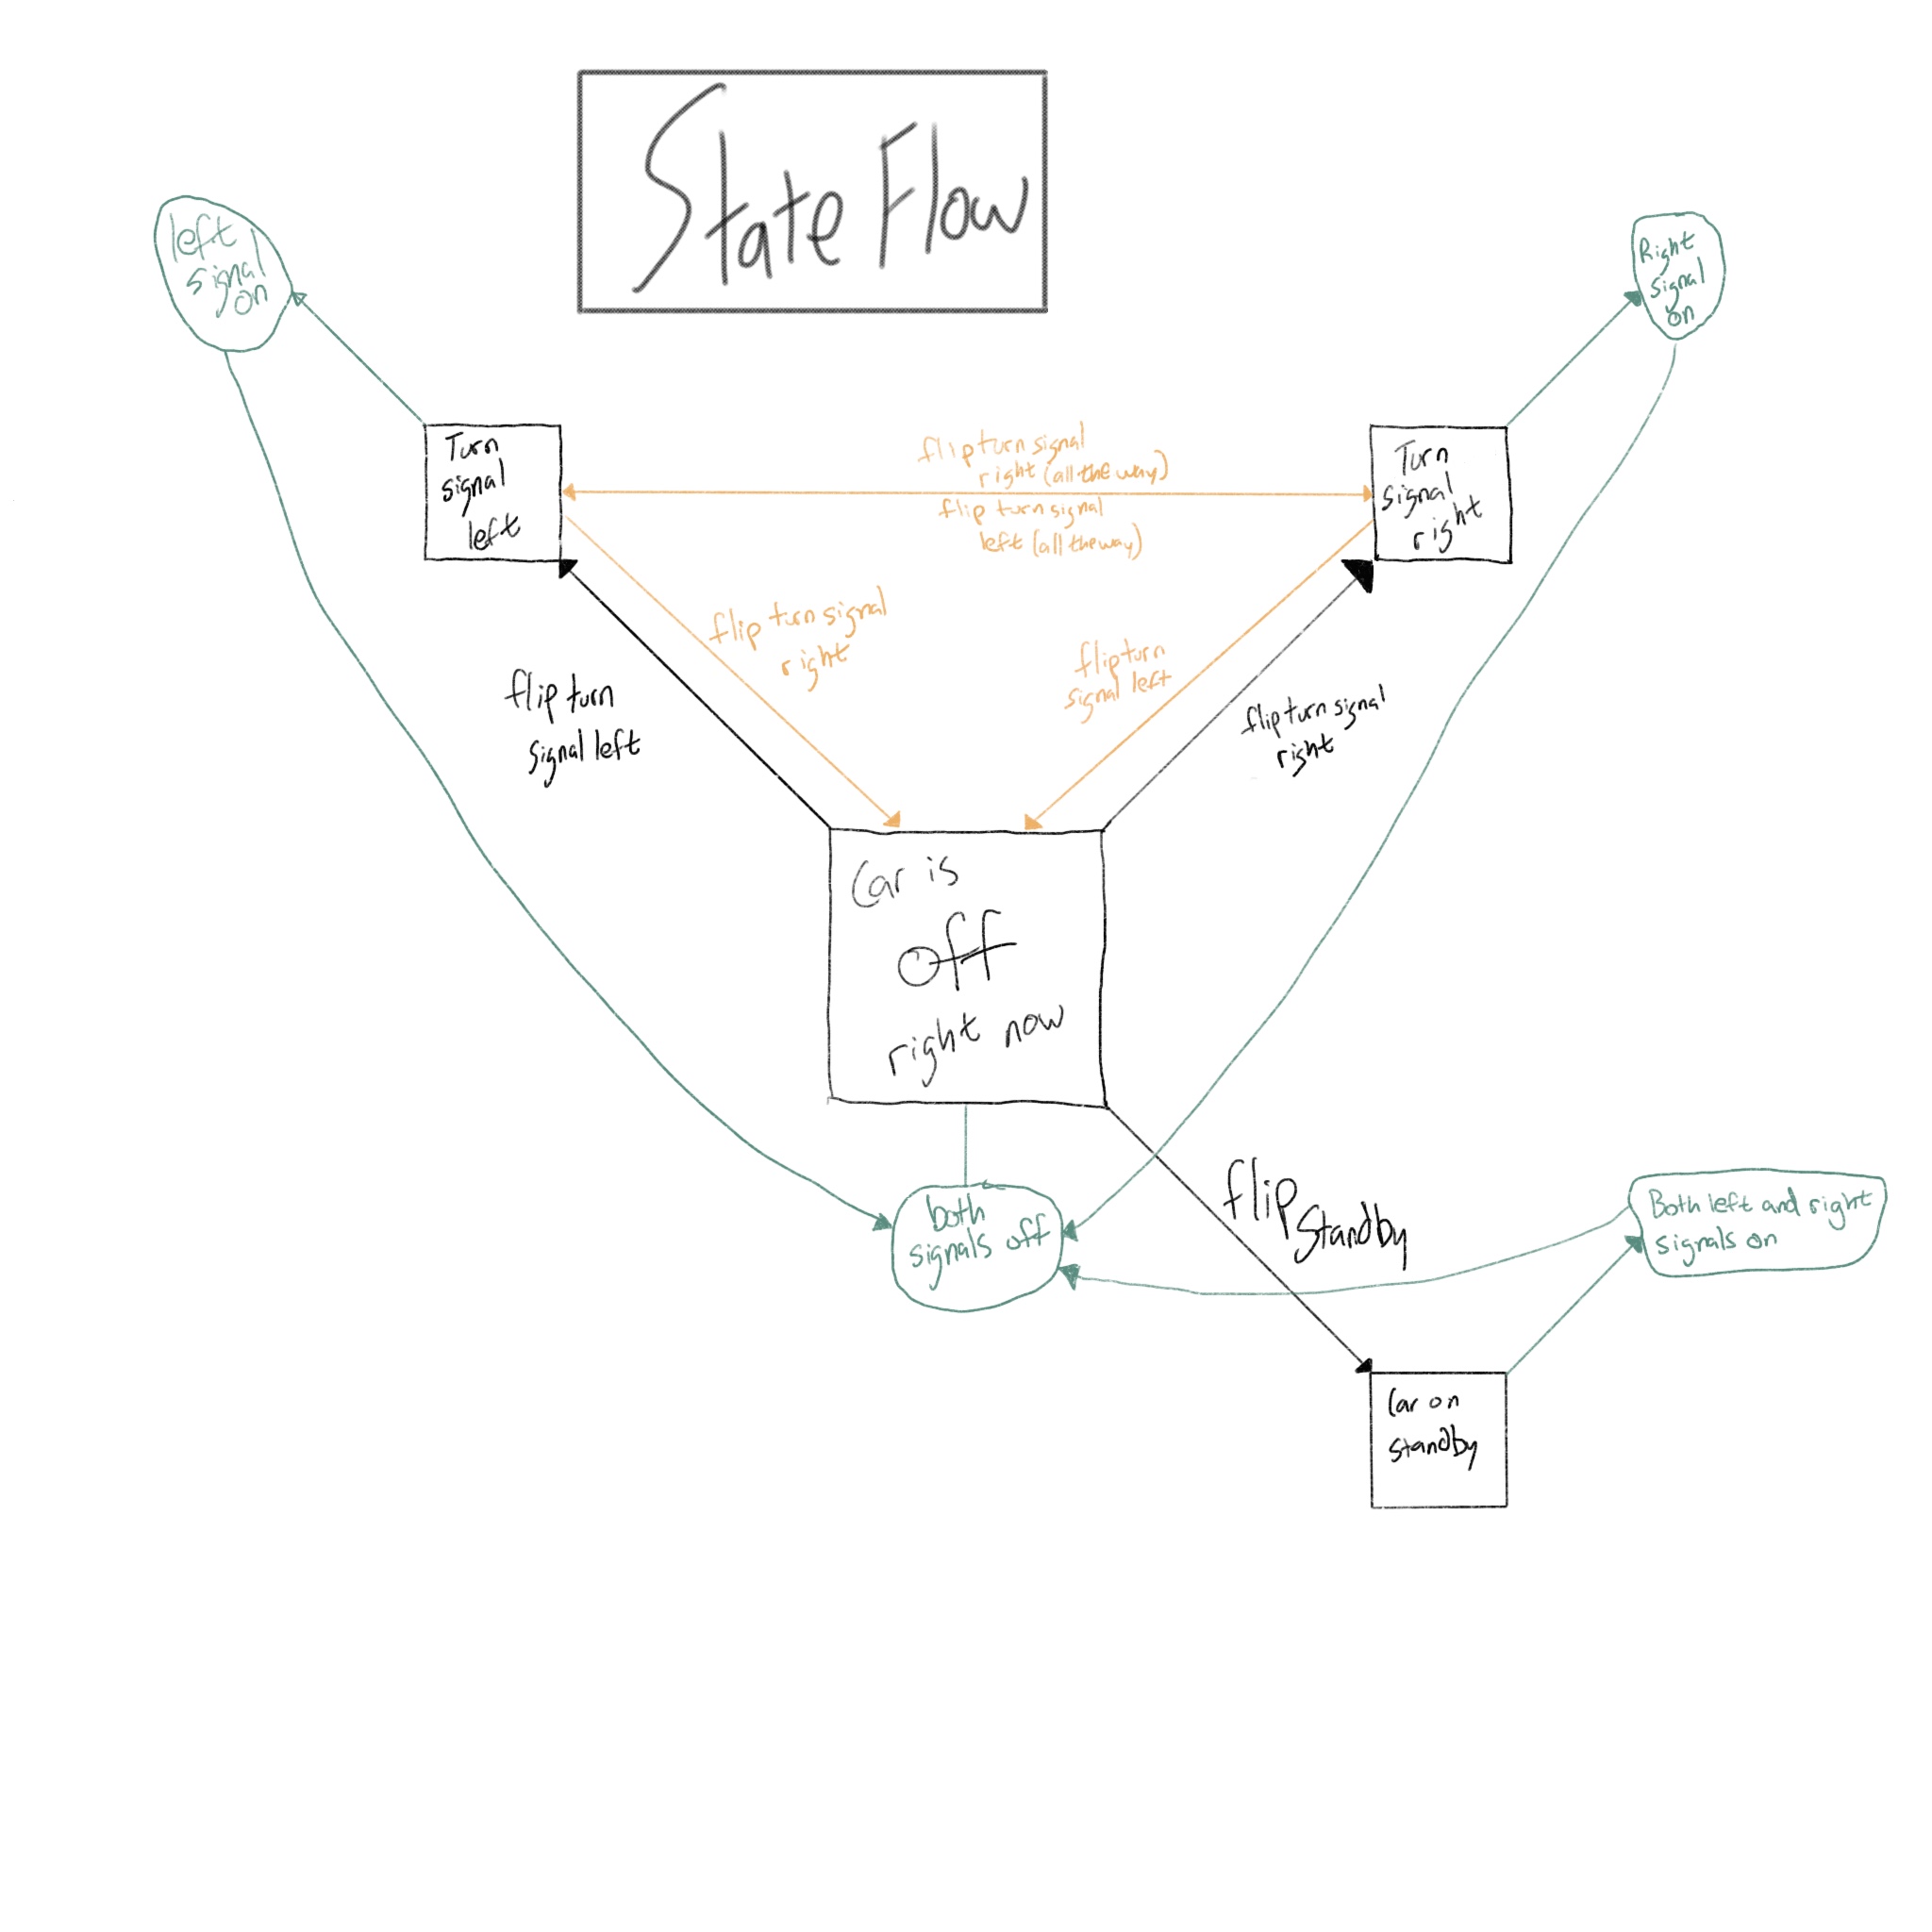 State Flow
left
signal
on
Right
signal
on
Turn
signal
left
flip turn signal
right (all the way)
flip turn signal
left (all the way)
Turn
signal
right
flip turn signal
right
flip turn
signal left
flip turn
signal left
flip turn signal
right
Car is
off
right now
both
signals off
flip
Standby
Both left and right
signals on
Car on
standby